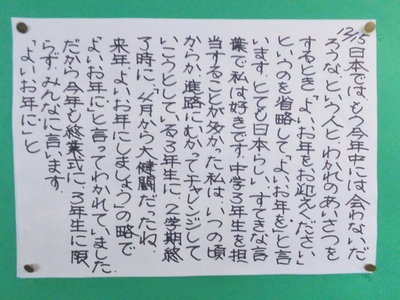 12/15 日本では、もう今年中には会わないだ
ろうなという人とわかれのあいさつを
するとき「よいお年をお迎えください」
というのを省略して「よいお年を」と言
います。とても日本らしい、すてきな言
葉で私は好きです。中学3年生を担
当することが多かった私は、いつの頃
からか、進路にむかってチャレンジして
いこうとしている3年生に、2学期終
了時に、「4月から大健闘だったね。
来年、よいお年にしましょう」の略で
「よいお年に」と言ってわかれていました。
だから今年も終業式に、3年生に限
らず、みんなに言います。
「よいお年に」と